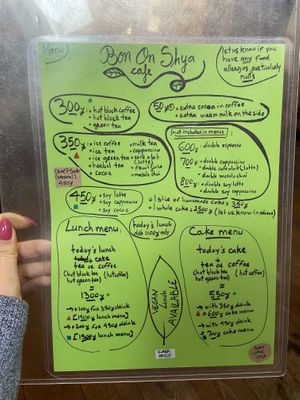 Menu
Bon On Shya
cafe
let us know if you
have any food
allergies, particularly
nuts
300y
• hot black coffee
• hot black tea
• green tea
50y
= extra cream in coffee
= extra warm milk on the side
350y
• ice coffee
• ice tea
• ice green tea
• herbal tea
• cocoa
• milk tea
• cappuccino
• cafe o'lait
(latte)
• masala chai
450y
• soy latte
• soy cappuccino
• soy cocoa
not included in menus:
600y
• double espresso
700y
• double cappuccino
• double cafe o'lait (latte)
• double masala chai
800y
• double soy latte
• double soy cappuccino
• 1 slice of homemade cake = 350y
• 1 whole cake = 2500y (let us know in advance)
Lunch menu
today's lunch
cake
tea or coffee
(hot black tea
hot green tea)
(hot coffee)
=
1300y
→ +100y for 350y drink
[1400y lunch menu]
→ +200y for 450y drink
[1500y lunch menu]
today's lunch
dish 1100y only
VEGAN
Lunch
AVAILABLE
Cake menu
today's cake
+
tea or coffee
(hot black tea
hot green tea)
(hot coffee)
=
550y
→ with 350y drink
= 600y cake menu
→ with 450y drink
= 700y cake menu